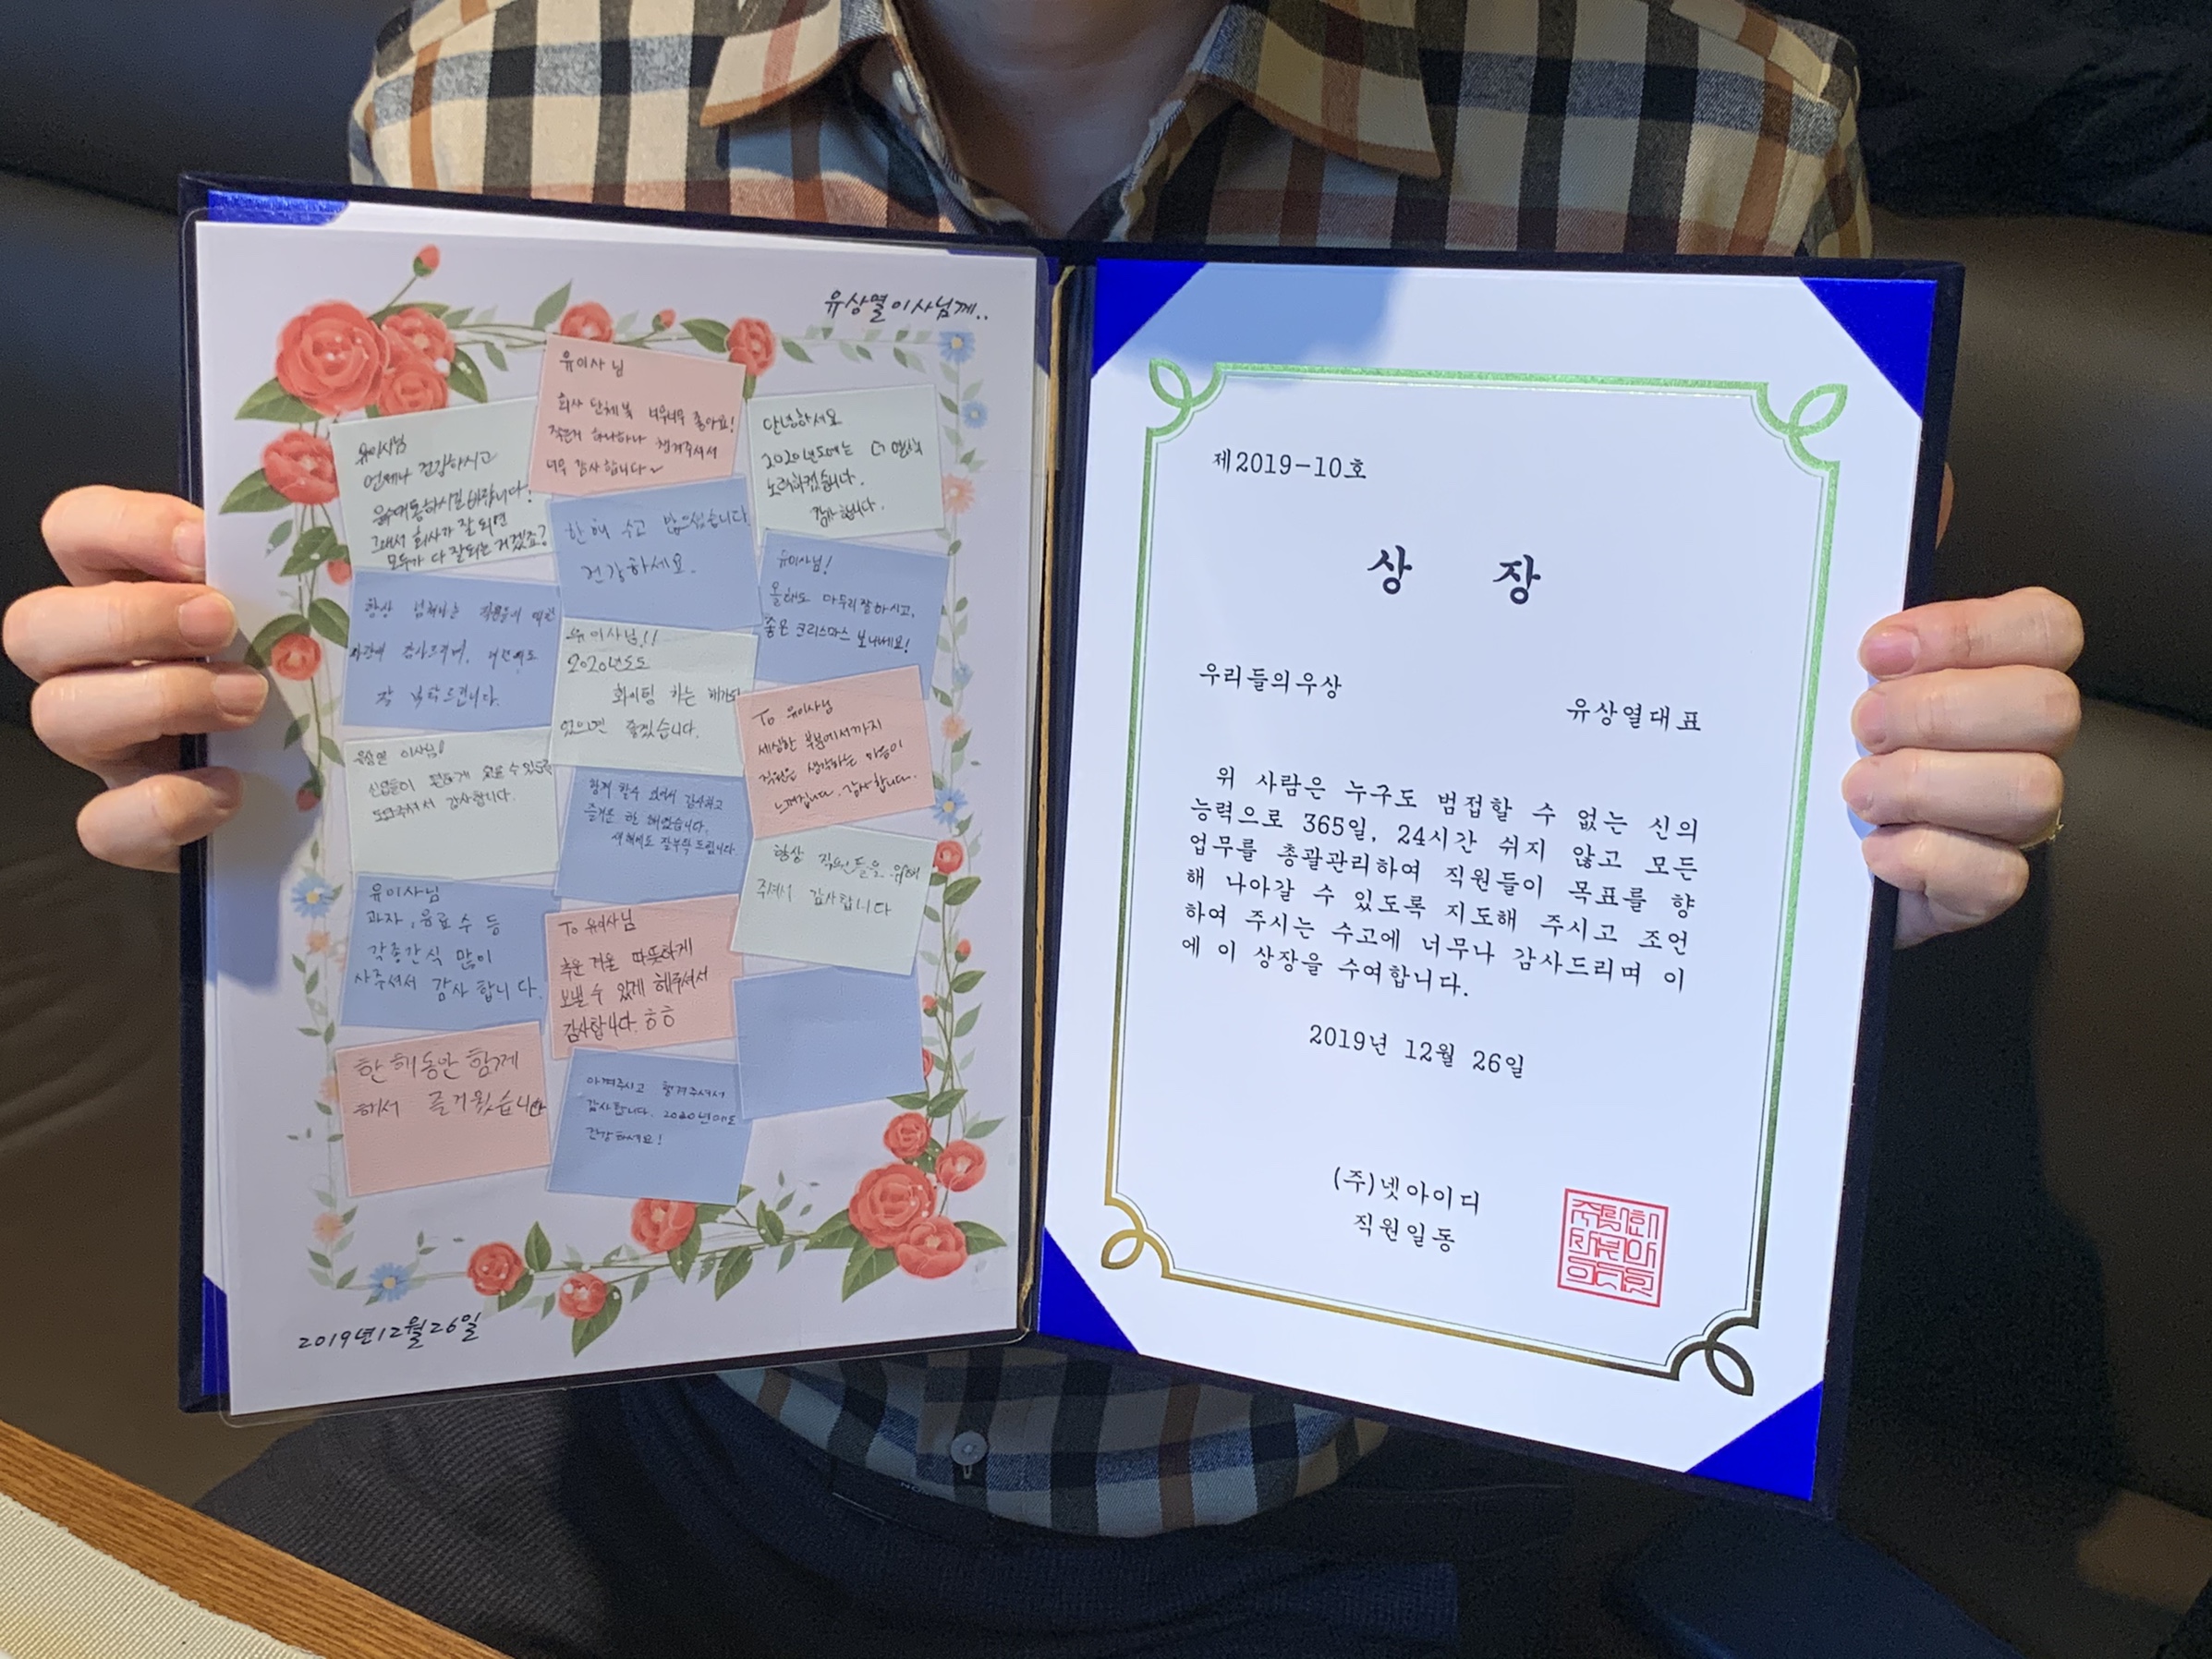 유상열이사님께..
유이사님
언제나 건강하시고
운수대통하시길 바랍니다!
그래서 회사가 잘 되면
모두가 다 잘되는거겠죠?
유이사님
회사 단체복 너무너무 좋아요!
작은거 하나하나 챙겨주셔서
너무 감사합니다~
안녕하세요
2020년도에는 더 열심히
노력하겠습니다.
감사합니다.
한해 수고 많으셨습니다
건강하세요.
유이사님!
올해도 마무리잘하시고,
좋은 크리스마스 보내세요!
항상 직원들의
감사드리며,
잘 부탁드립니다.
유이사님!!
2020년도도
화이팅 하는 해가되
었으면 좋겠습니다.
To 유이사님
세심한 부분에서까지
직원을 생각하는 마음이
느껴집니다. 감사합니다.
유상열 이사님!
도와주셔서 감사합니다.
함께 할수 있어서 감사하고
즐거운 한 해였습니다.
새해에도 잘부탁드립니다.
항상 직원들을 위해
주셔서 감사합니다
유이사님
과자, 음료수 등
각종간식 많이
사주셔서 감사합니다.
To 유이사님
추운 겨울 따뜻하게
보낼 수 있게 해주셔서
감사합니다. ㅎㅎ
한해동안 함께
해서 즐거웠습니다
아껴주시고 챙겨주셔서
감사합니다. 2020년에도
건강하세요!
2019년12월26일
제2019-10호
상 장
우리들의우상
유상열대표
위 사람은 누구도 범접할 수 없는 신의
능력으로 365일, 24시간 쉬지 않고 모든
업무를 총괄관리하여 직원들이 목표를 향
해 나아갈 수 있도록 지도해 주시고 조언
하여 주시는 수고에 너무나 감사드리며 이
에 이 상장을 수여합니다.
2019년 12월 26일
(주)넷아이디
직원일동